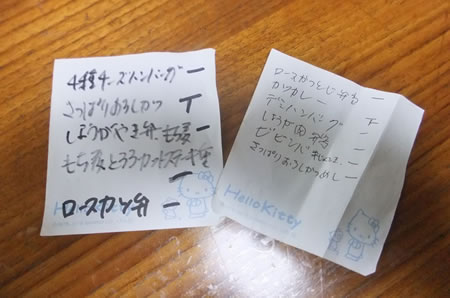 4種チーズハンバーグ ー
さっぱりおろしかつ T
しょうがやき弁 もち麦 ー
もち麦とろろカットステーキ重
ー
ロースカツ弁 ー
Hello Kitty
ロースかつとじ弁当 ー
カツカレー T
デミハンバーグ ー
しょうが肉弁 ー
ビビンバ ー
さっぱりおろしかつめし ー
Hello Kitty